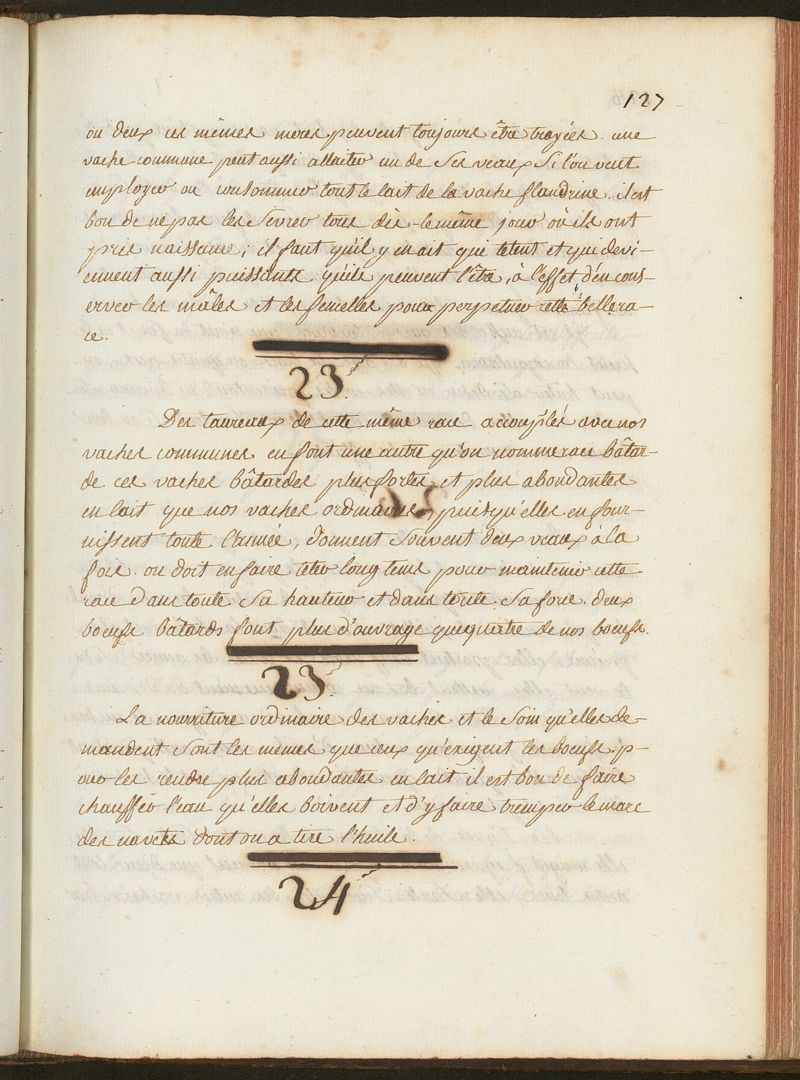 127
ou deux ces mêmes meres peuvent toujours être trayées. une
vache commune peut aussi allaiter un de ses veaux si l'on veut
employer ou consommer tout le lait de la vache flandrine. il est
bon de ne pas les sevrer tous dès-le même jour où ils ont
pris naissance; il faut qu'il y en ait qui tetent et qui devi-
ennent aussi puissants qu'ils peuvent l'être, à l'effet d'en cons-
erver les mâles et les femelles pour perpetuer cette belle ra-
ce.
23.
Des taureaux de cette même race accouplés avec nos
vaches communes en font une autre qu'on nomme race bâtar-
de. ces vaches bâtardes plus fortes et plus abondantes
en lait que nos vaches ordinaires, puisqu'elles en four-
nissent toute l'année, donnent souvent deux veaux à la
fois. on doit en faire teter long tems pour maintenir cette
race dans toute sa hauteur et dans toute sa force. deux
boeufs bâtards font plus d'ouvrage que quatre de nos boeufs.
23.
La nourriture ordinaire des vaches et le soin qu'elles de-
mandent sont les mêmes que ceux qu'exigent les boeufs. p-
our les rendre plus abondantes en lait il est bon de faire
chauffer l'eau qu'elles boivent et d'y faire tremper le marc
des navets dont on a tiré l'huile.
24